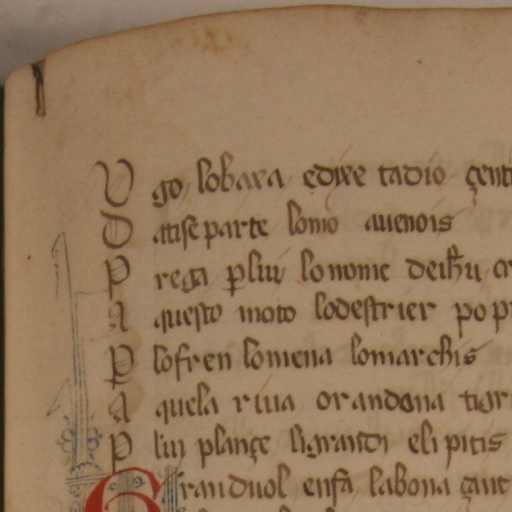 Ugo lobaxa edixe tadio çent
D atise parte lomo auenois
P rega plui lonome deihu cr
A questo moto lodestrier po p
P lofren lomena lomarchis
A quela riua orandona tigr
P lui plançe ligrandi eli pitis
Gran duol enfa labona çant